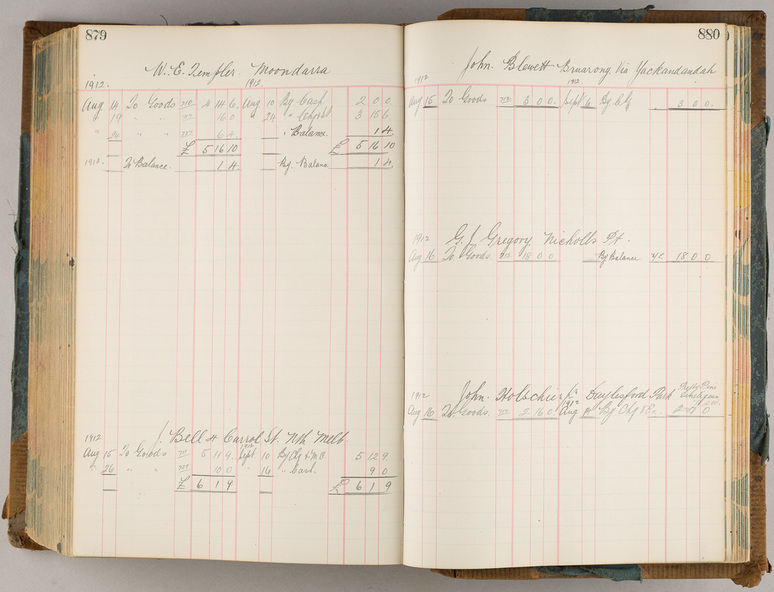 879
W. E. Templer. Moondarra
1912. 1912
Aug 14 To Goods 4 14 6 Aug 10 By Cash 2 0 0
" 19 " " 16 0 " 24 " 3 15 6
" 26 " " 6 4 " Balance 1 4
£ 5 16 10 £ 5 16 10
1912. To Balance. 1 4 By Balance 1 4
1912 J. Bell 4 Carrol St. Nth Melb
Aug 15 To Goods 5 11 9 Sept 10 By Chq 5 12 9
" 26 " " 10 0 " 16 " Cash. 9 0
£ 6 1 9 £ 6 1 9
880
John. Blewett Bruarong Via Yackandandah
1912 1912
Aug 15 To Goods 3 0 0 Sept 6 By Chq 3 0 0
1912 G. J. Gregory Nicholls Pt.
Aug 16 To Goods. 18 0 0 By Balance 42 18 0 0
1912 John. Holschier Jr Daylesford Park
1912
Aug 16 To Goods. 2 16 0 Aug By Chq 2 0